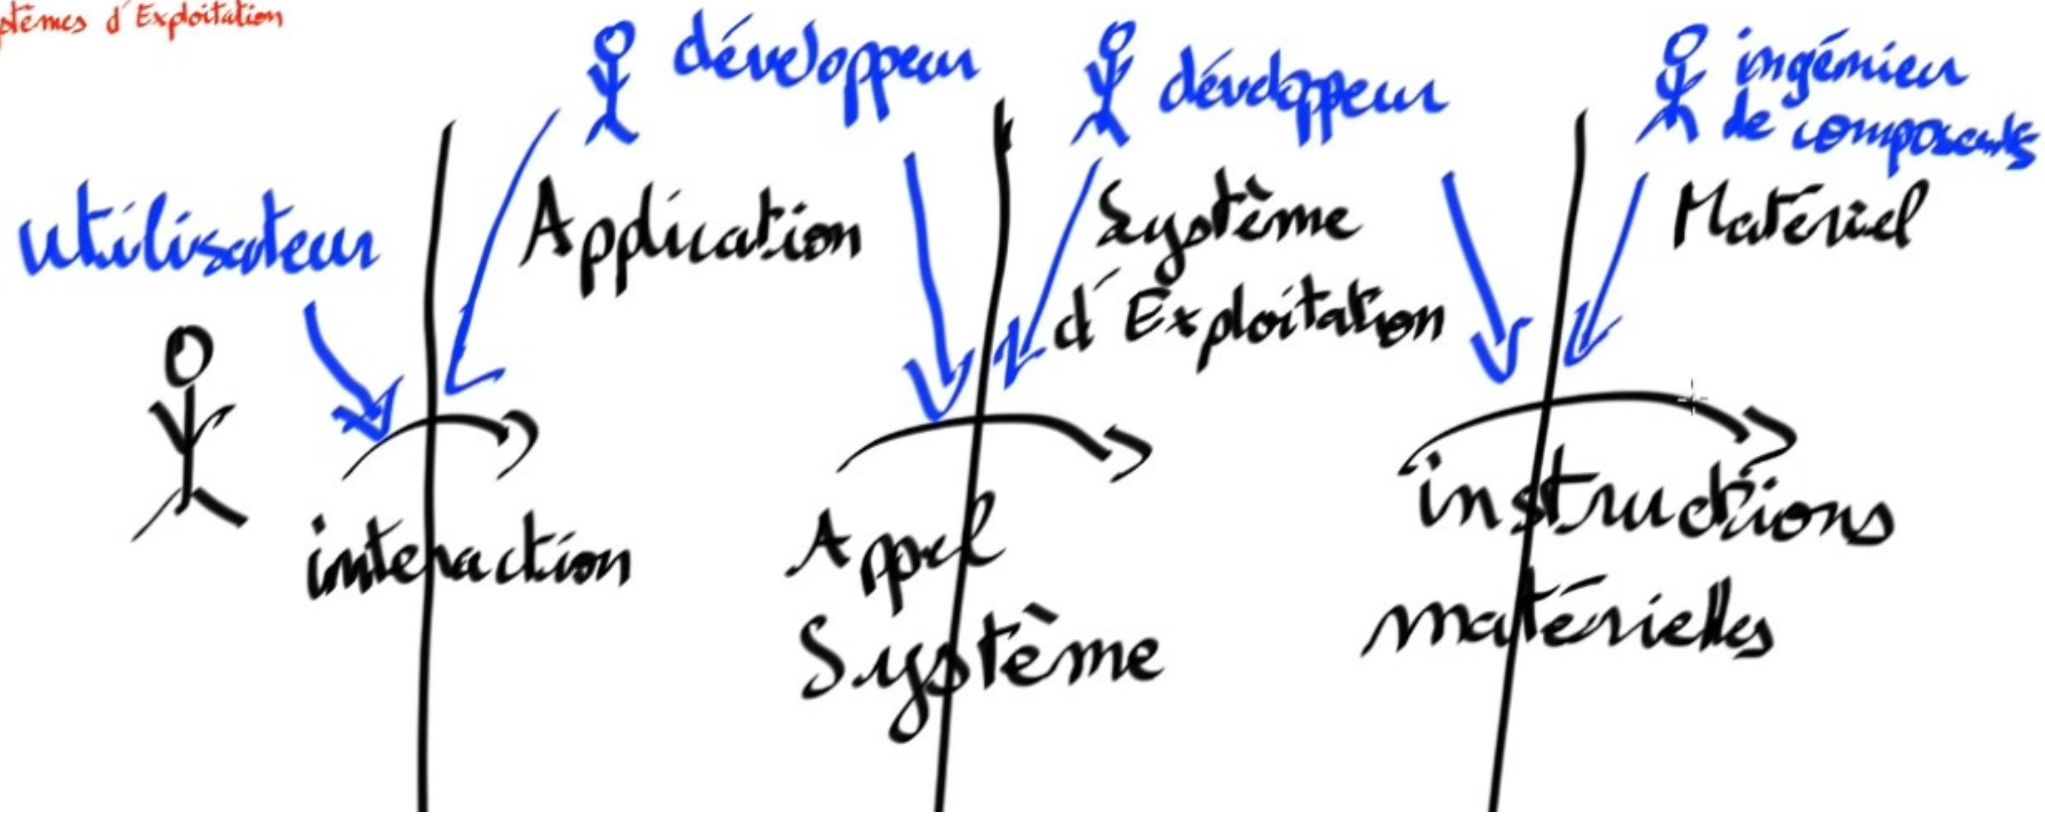 stèmes d'Exploitation
développeur
développeur
ingénieur
de composants
utilisateur
Application
Système
d'Exploitation
Matériel
interaction
Appel
Système
instructions
matérielles